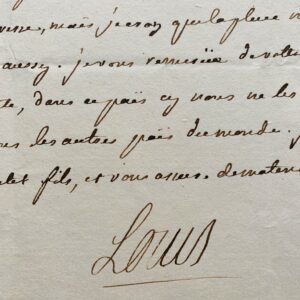 mais je croy que la pluie
aussy. je vous remercie de votre
dans ce païs cy nous ne les
les autres païs du monde.
fils, et vous assure de ma
Louis